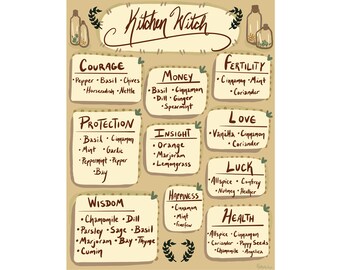 Kitchen Witch
Courage
• Pepper • Basil • Chives
• Horseradish • Nettle
Money
Basil • Cinnamon
• Dill • Ginger
• Spearmint
Fertility
• Cinnamon • Mint
• Coriander
Protection
• Basil • Cinnamon
• Mint • Garlic
• Peppermint • Pepper
• Bay
Insight
• Orange
• Marjoram
• Lemongrass
Love
Vanilla • Cinnamon
• Coriander
Luck
Allspice • Comfrey
• Nutmeg • Heather
Wisdom
• Chamomile • Dill
• Parsley • Sage • Basil
• Marjoram • Bay • Thyme
• Cumin
Happiness
• Cinnamon
• Mint
Health
Allspice • Cinnamon
• Coriander • Poppy Seeds
• Chamomile • Angelica